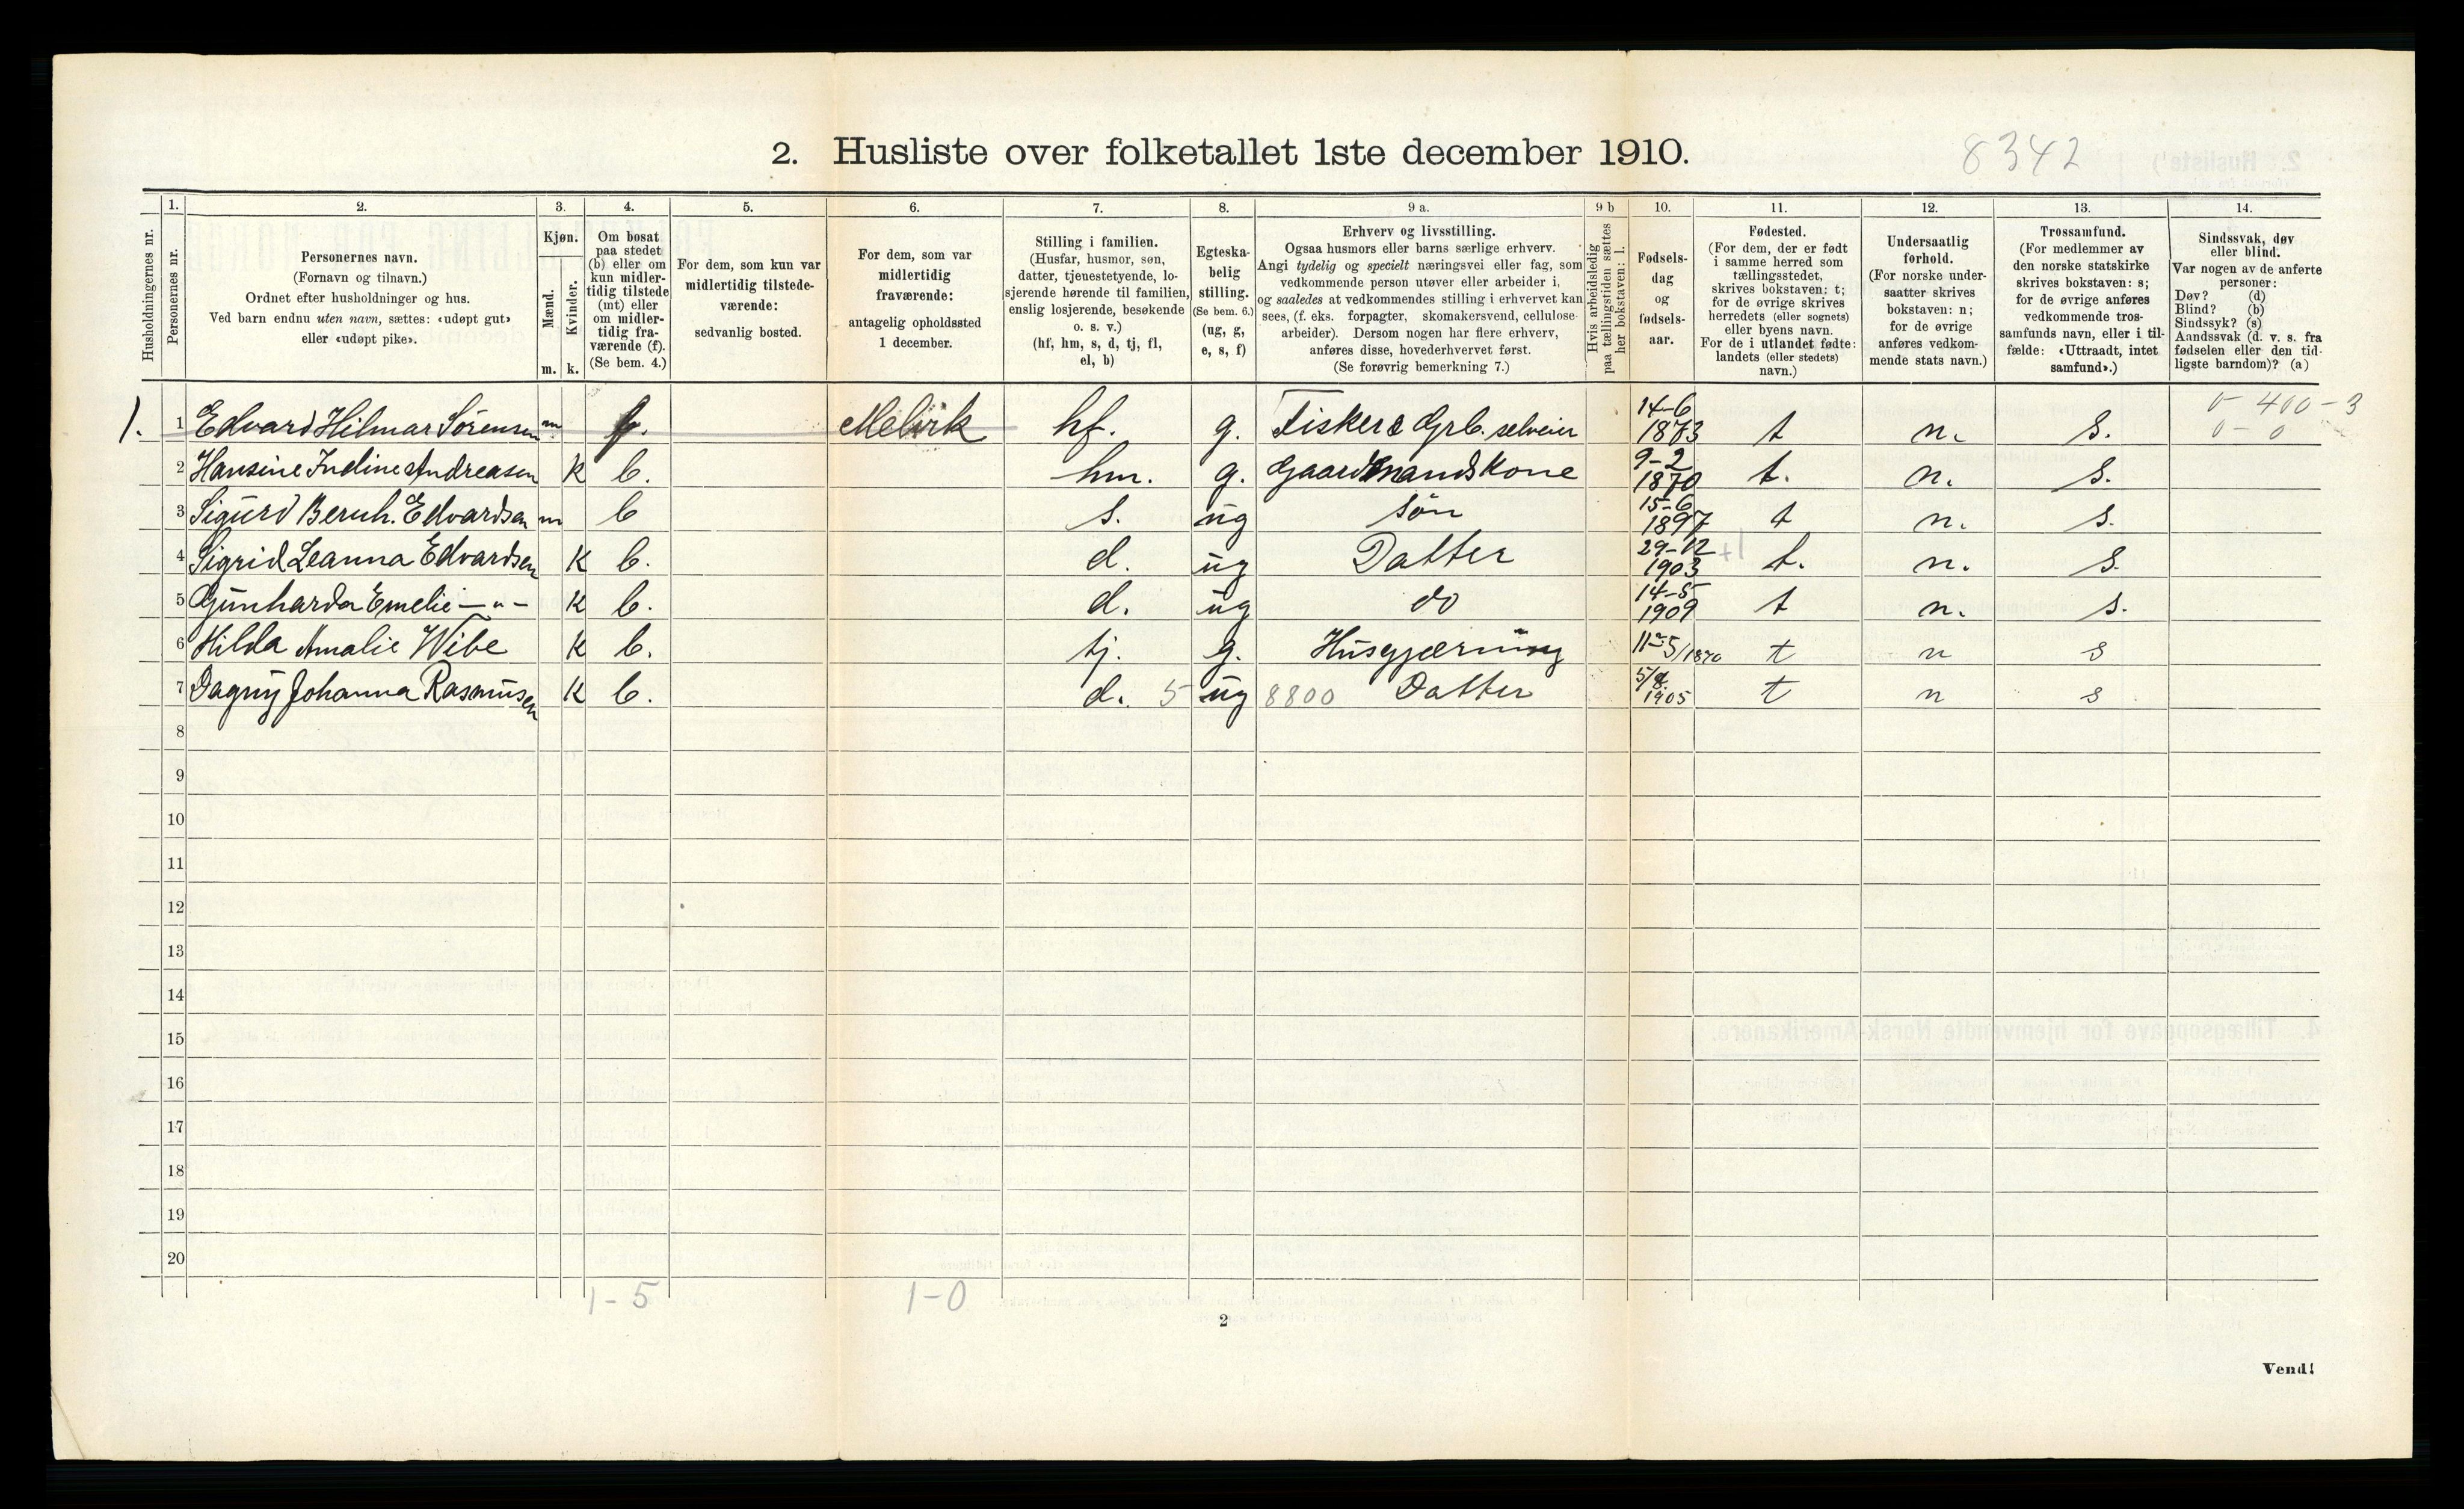 2. Husliste over folketallet 1ste december 1910.
8342
Husholdningernes nr.
1.
Personernes nr.
2.
Personernes navn.
(Fornavn og tilnavn.)
Ordnet efter husholdninger og hus.
Ved barn endnu uten navn, sættes: «udøpt gut»
eller «udøpt pike».
3.
Kjøn.
Mænd.
Kvinder.
m. k.
4.
Om bosat
paa stedet
(b) eller om
kun midler-
tidig tilstede
(mt) eller
om midler-
tidig fra-
værende (f).
(Se bem. 4.)
5.
For dem, som kun var
midlertidig tilstede-
værende:
sedvanlig bosted.
6.
For dem, som var
midlertidig
fraværende:
antagelig opholdssted
1 december.
7.
Stilling i familien.
(Husfar, husmor, søn,
datter, tjenestetyende, lo-
sjerende hørende til familien,
enslig losjerende, besøkende
o. s. v.)
(hf, hm, s, d, tj, fl,
el, b)
8.
Egteska-
belig
stilling.
(Se bem. 6.)
(ug, g,
e, s, f)
9 a.
Erhverv og livsstilling.
Ogsaa husmors eller barns særlige erhverv.
Angi tydelig og specielt næringsvei eller fag, som
vedkommende person utøver eller arbeider i,
og saaledes at vedkommendes stilling i erhvervet kan
sees, (f. eks. forpagter, skomakersvend, cellulose-
arbeider). Dersom nogen har flere erhverv,
anføres disse, hovederhvervet først.
(Se forøvrig bemerkning 7.)
9 b
Hvis arbeidsledig
paa tællingstiden sættes
her bokstaven: l.
10.
Fødsels-
dag
og
fødsels-
aar.
11.
Fødested.
(For dem, der er født
i samme herred som
tællingsstedet,
skrives bokstaven: t;
for de øvrige skrives
herredets (eller sognets)
eller byens navn.
For de i utlandet fødte:
landets (eller stedets)
navn.)
12.
Undersaatlig
forhold.
(For norske under-
saatter skrives
bokstaven: n;
for de øvrige
anføres vedkom-
mende stats navn.)
13.
Trossamfund.
(For medlemmer av
den norske statskirke
skrives bokstaven: s;
for de øvrige anføres
vedkommende tros-
samfunds navn, eller i til-
fælde: «Uttraadt, intet
samfund».)
14.
Sindssvak, døv
eller blind.
Var nogen av de anførte
personer:
Døv? (d)
Blind? (b)
Sindssyk? (s)
Aandssvak (d. v. s. fra
fødselen eller den tid-
ligste barndom)? (a)
1. 1 Edvard Hilmar Sørensen m f. hf. g. Fisker & Grb. selveier 14-6 1873 t n. s. 0-400-3
0-0
2 Hansine Indine Andreasen k b. hm. g. Gaardmandskone 9-2 1870 t. n. s.
3 Sigurd Bernh. Edvardsen m b s. ug søn 15-6 1897 t n. s.
4 Sigrid Leanna Edvardsen k b. d. ug Datter 29-12 1903 +1 t. n. s.
5 Gunharda Emelie —"— k b. d. ug do 14-5 1909 t n. s.
6 Hilda Amalie Wibe k b. tj. g. Husgjerning 11-5/1870 t n s
7 Dagny Johanna Rasmusen k b. d. 5 ug 8800 Datter 1905 t n s
8
9
10
11
12
13
14
15
16
17
18
19
20
1-5 1-0
2
Vend!